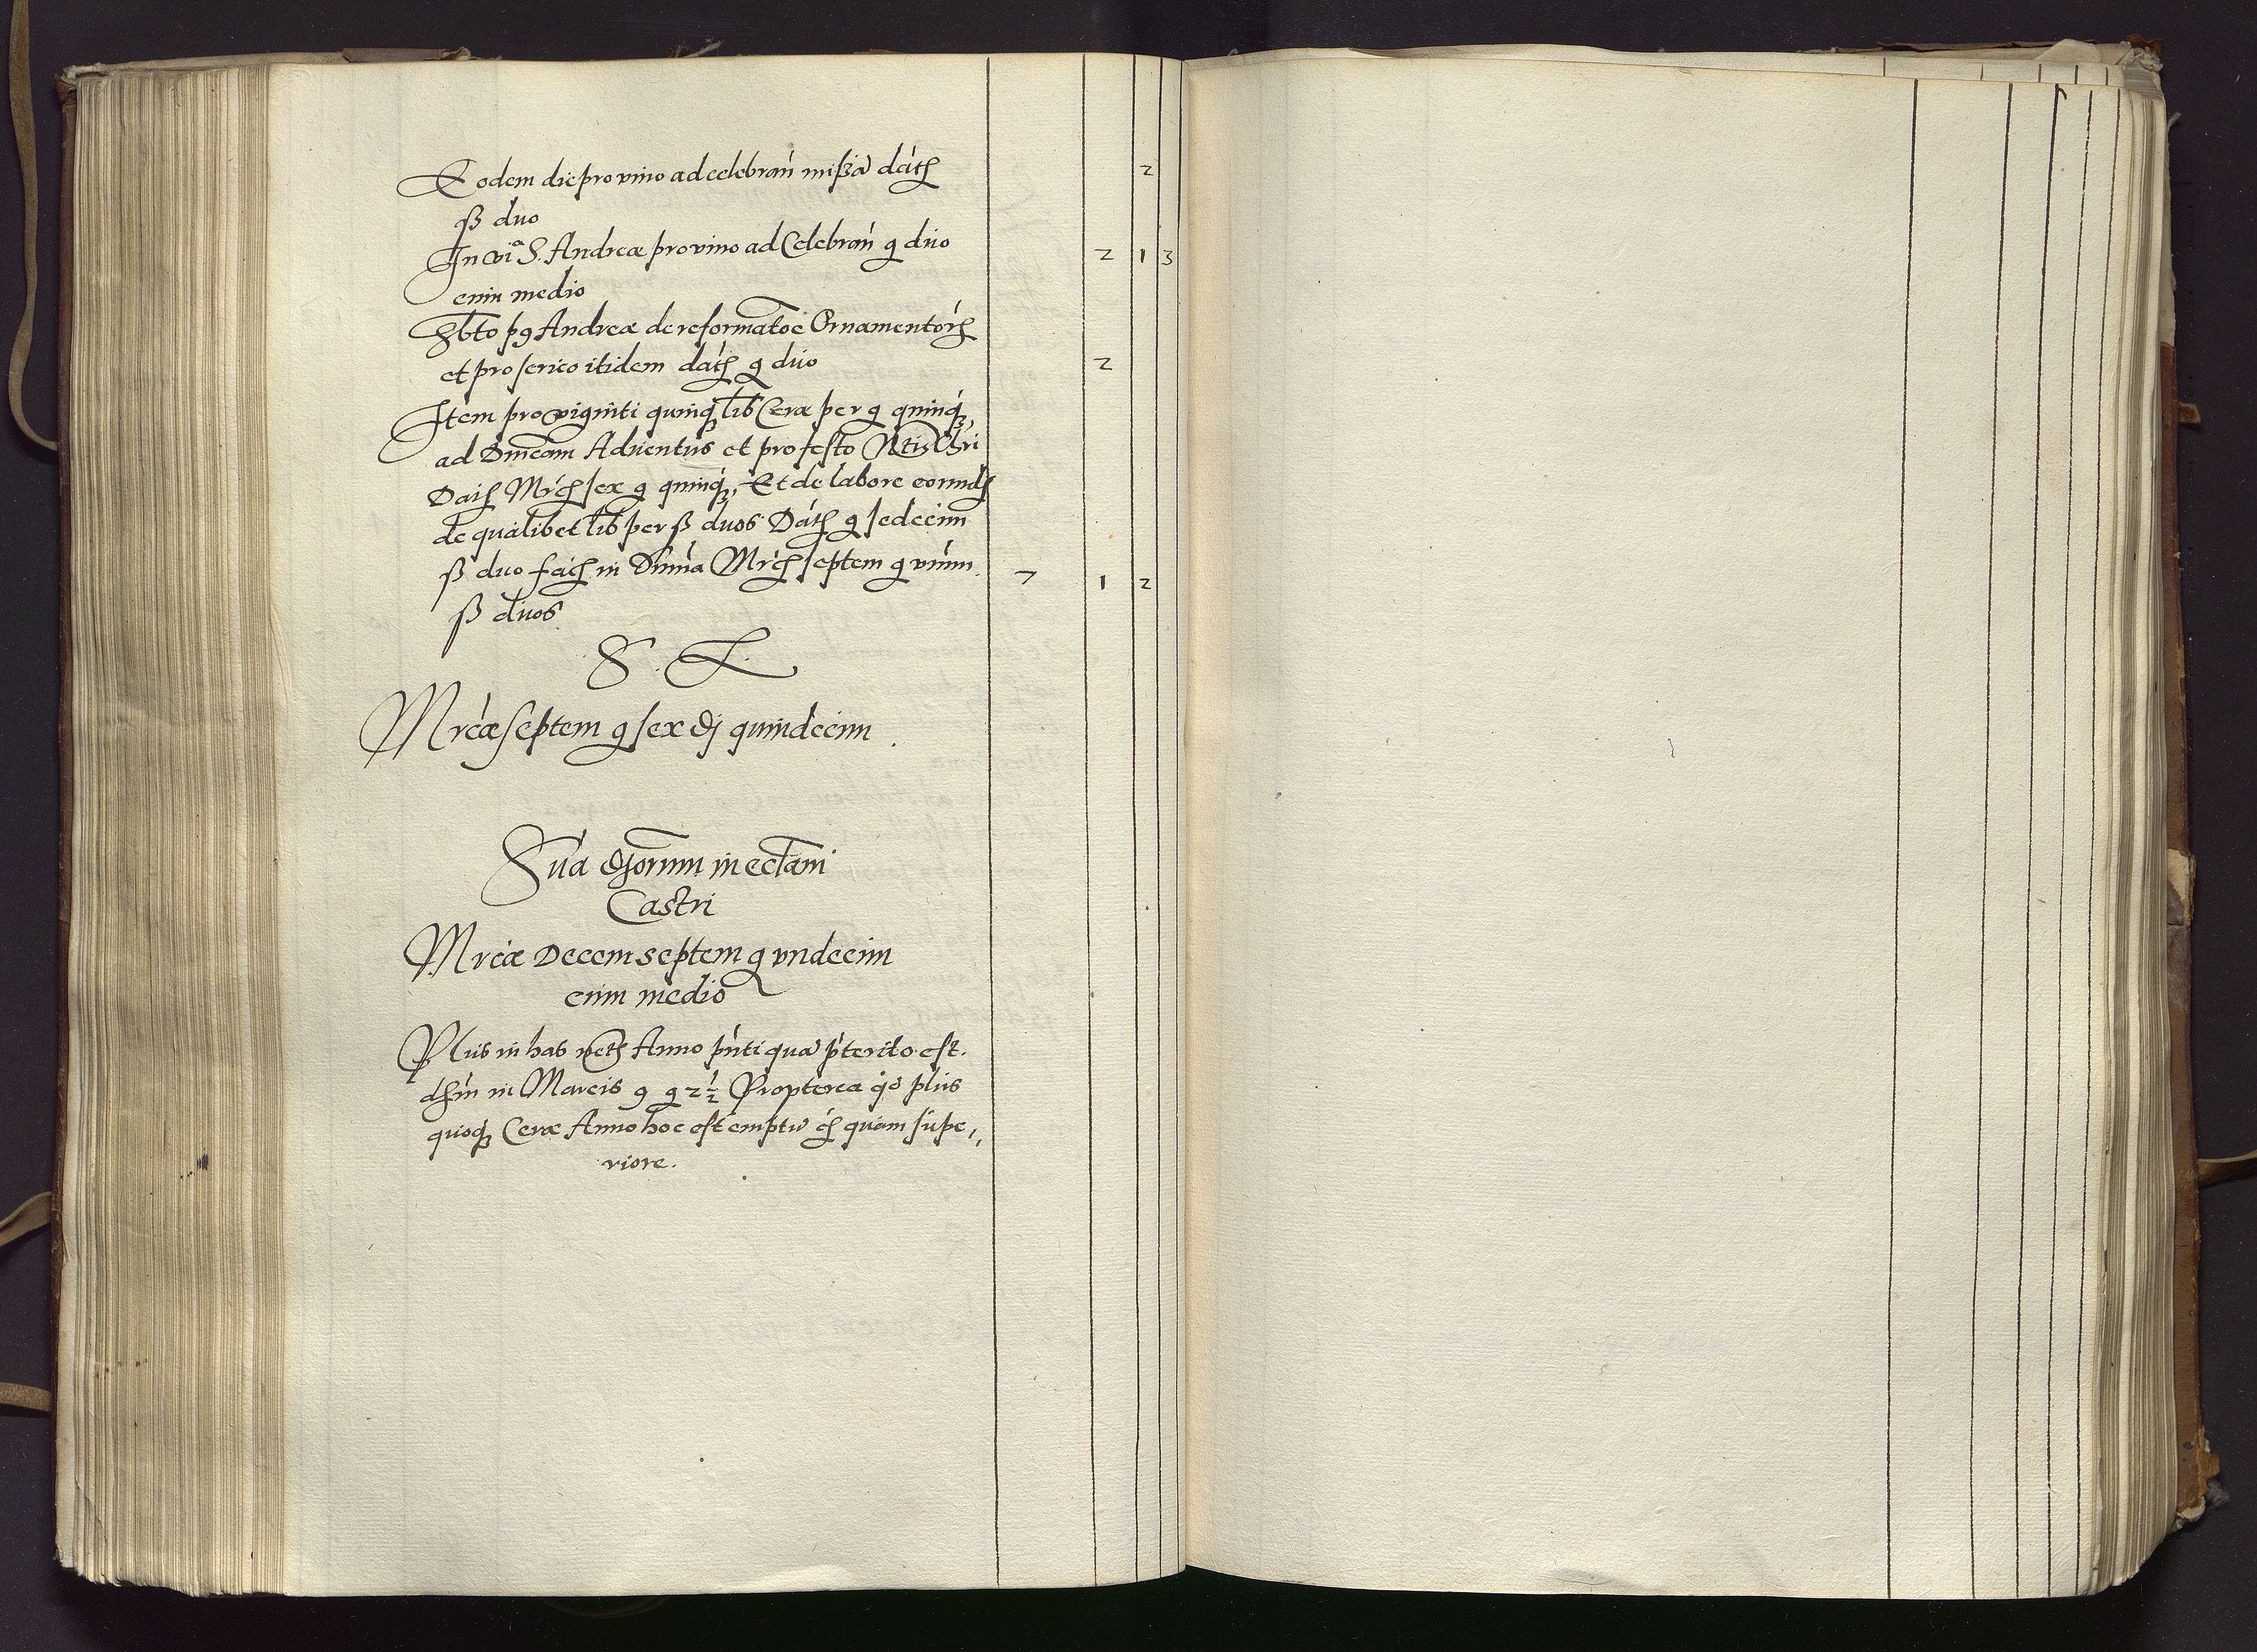 Eodem die pro vino ad celebran missa dath 2
ß duo
In via S. Andreæ pro vino ad Celebran g duo 2 1 3
enim medio
Sbto p9 Andreæ de reformatoe Ornamentorh
et pro serico itidem dath g duo 2
Item pro viginti quinq lib Ceræ per g quinq,
ad Dnicam Adventus et pro festo Ntis Chri
Dath Mrch sex g quinq, Et de labore eorund
de qualibet lib per ß duos Dath g sedecim
ß duo facih in Suma Mrch septem g unum 7 1 2
ß duos
S. L.
Mrcæ septem g sex quindecim
Sua in ecclam
Castri
Mrcæ Decem septem g undecim
enim medio
Plus in has Anno pnti qua pterito est.
in Marcis 9 g 2½ Propterea qd plus
quoq Ceræ Anno hoc est emptu quam supe,,
riore.